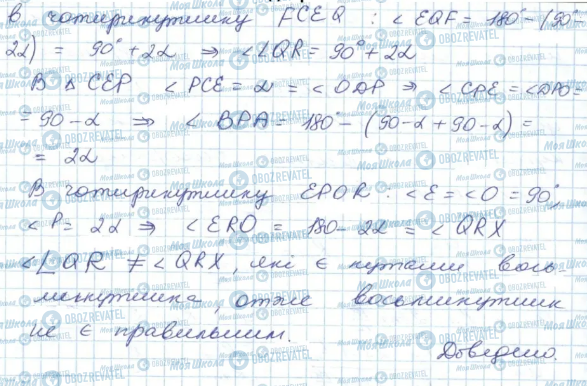 В чотирикутнику FCEQ : ∠EQF = 180° - (90° -
2α) = 90° + 2α ⇒ ∠LQR = 90° + 2α
В △ CEP ∠PCE = α = ∠ODP ⇒ ∠CPE = ∠DPO =
= 90 - α ⇒ ∠BPA = 180° - (90 - α + 90 - α) =
= 2α
В чотирикутнику EPOR : ∠E = ∠O = 90°,
∠P = 2α ⇒ ∠ERO = 180 - 2α = ∠QRX
∠LQR ≠ ∠QRX, які є кутами вось-
микутника, отже восьмикутник
не є правильним.
Доведено.